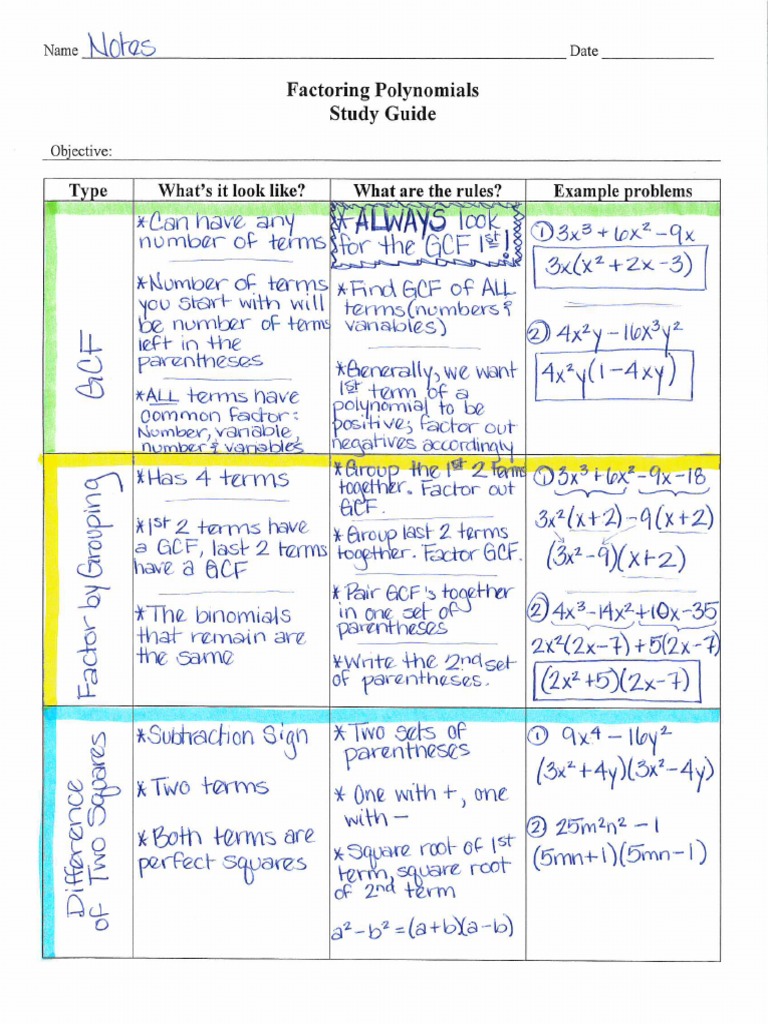 Name Notes Date
Factoring Polynomials
Study Guide
Objective:
Type What's it look like? What are the rules? Example problems
GCF
*Can have any
number of terms
*Number of terms
you start with will
be number of terms
left in the
parentheses
*ALL terms have
common factor:
Number, variable,
number & variables
*ALWAYS look
for the GCF 1st!
*Find GCF of ALL
terms (numbers &
variables)
*Generally, we want
1st term of a
polynomial to be
positive; factor out
negatives accordingly
① 3x³ + 6x² - 9x
3x(x² + 2x - 3)
② 4x²y - 16x³y²
4x²y(1 - 4xy)
Factor by Grouping
*Has 4 terms
*1st 2 terms have
a GCF, last 2 terms
have a GCF
*The binomials
that remain are
the same
*Group the 1st 2 terms
together. Factor out
GCF.
*Group last 2 terms
together. Factor GCF.
*Pair GCF's together
in one set of
parentheses
*Write the 2nd set
of parentheses.
① 3x³ + 6x² - 9x - 18
3x²(x+2) - 9(x+2)
(3x² - 9)(x+2)
② 4x³ - 14x² + 10x - 35
2x²(2x-7) + 5(2x-7)
(2x² + 5)(2x - 7)
Difference
of Two Squares
*Subtraction Sign
*Two terms
*Both terms are
perfect squares
*Two sets of
parentheses
*One with +, one
with -
*Square root of 1st
term, square root
of 2nd term
a² - b² = (a+b)(a-b)
① 9x⁴ - 16y²
(3x² + 4y)(3x² - 4y)
② 25m²n² - 1
(5mn+1)(5mn-1)